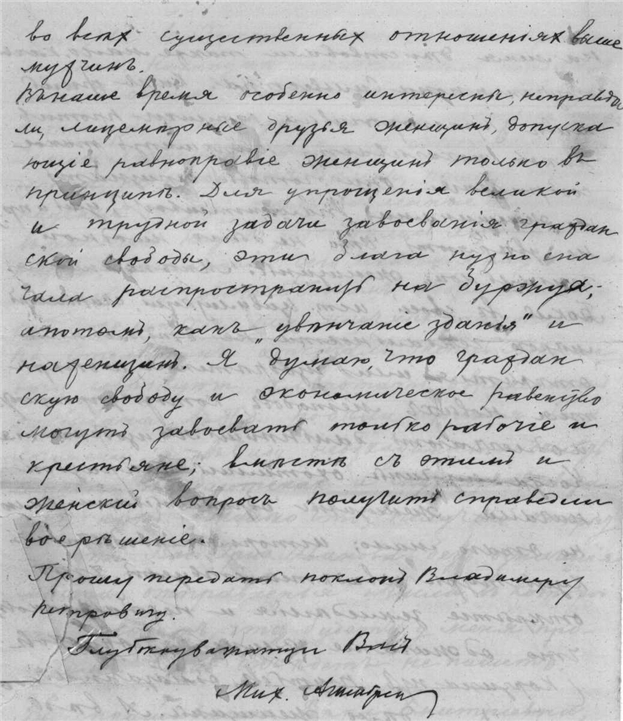 во всѣх существенных отношеніях выше
мужчинъ.
Въ наше время особенно интересны, неправда
ли, лицемѣрные друзья женщинъ, допуска
ющіе равноправіе женщинъ только въ
принципѣ. Для упрощенія великой
и трудной задачи завоеванія граждан
ской свободы, эти блага нужно сна
чала распространить на буржуа,
а потомъ, какъ „увѣнчаніе зданія" и
на женщинъ. Я думаю, что граждан
скую свободу и экономическое равенство
могутъ завоевать только рабочіе и
крестьяне; вмѣстѣ съ этимъ и
женскій вопросъ получитъ справедли
вое рѣшеніе.
Прошу передать поклонъ Владиміру
Петровичу.
Глубокоуважающій Васъ
Мих.